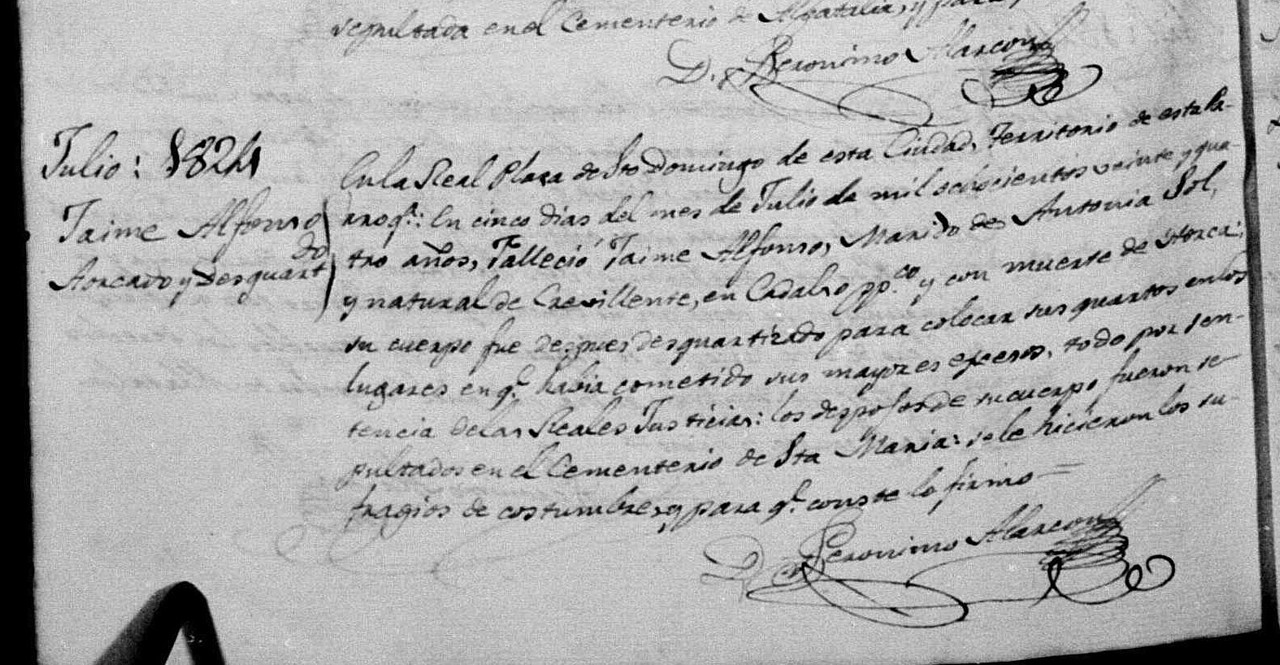 sepultada en el Cementerio de Algatalia, y para
D. Geronimo Alarcon
Julio: 1824
Jaime Alfonso
Aorcado y Desquartdo
En la Real Plaza de Sto Domingo de esta Ciudad, Territorio de esta Pa-
rroqa.: En cinco dias del mes de Julio de mil ochocientos veinte y qua-
tro años, Falleció Jaime Alfonso, Marido de Antonia Sol,
y natural de Crevillente, en Cadalso ppco. y con muerte de Horca,
su cuerpo fue despues desquartizado para colocar sus quartos en los
lugares en q.e havia cometido sus mayores exesos, todo por sen-
tencia de las Reales Justicias: los despojos de su cuerpo fueron se-
pultados en el Cementerio de Sta Maria: se le hicieron los su-
fragios de costumbre, y para q.e conste lo firmo =
D. Geronimo Alarcon